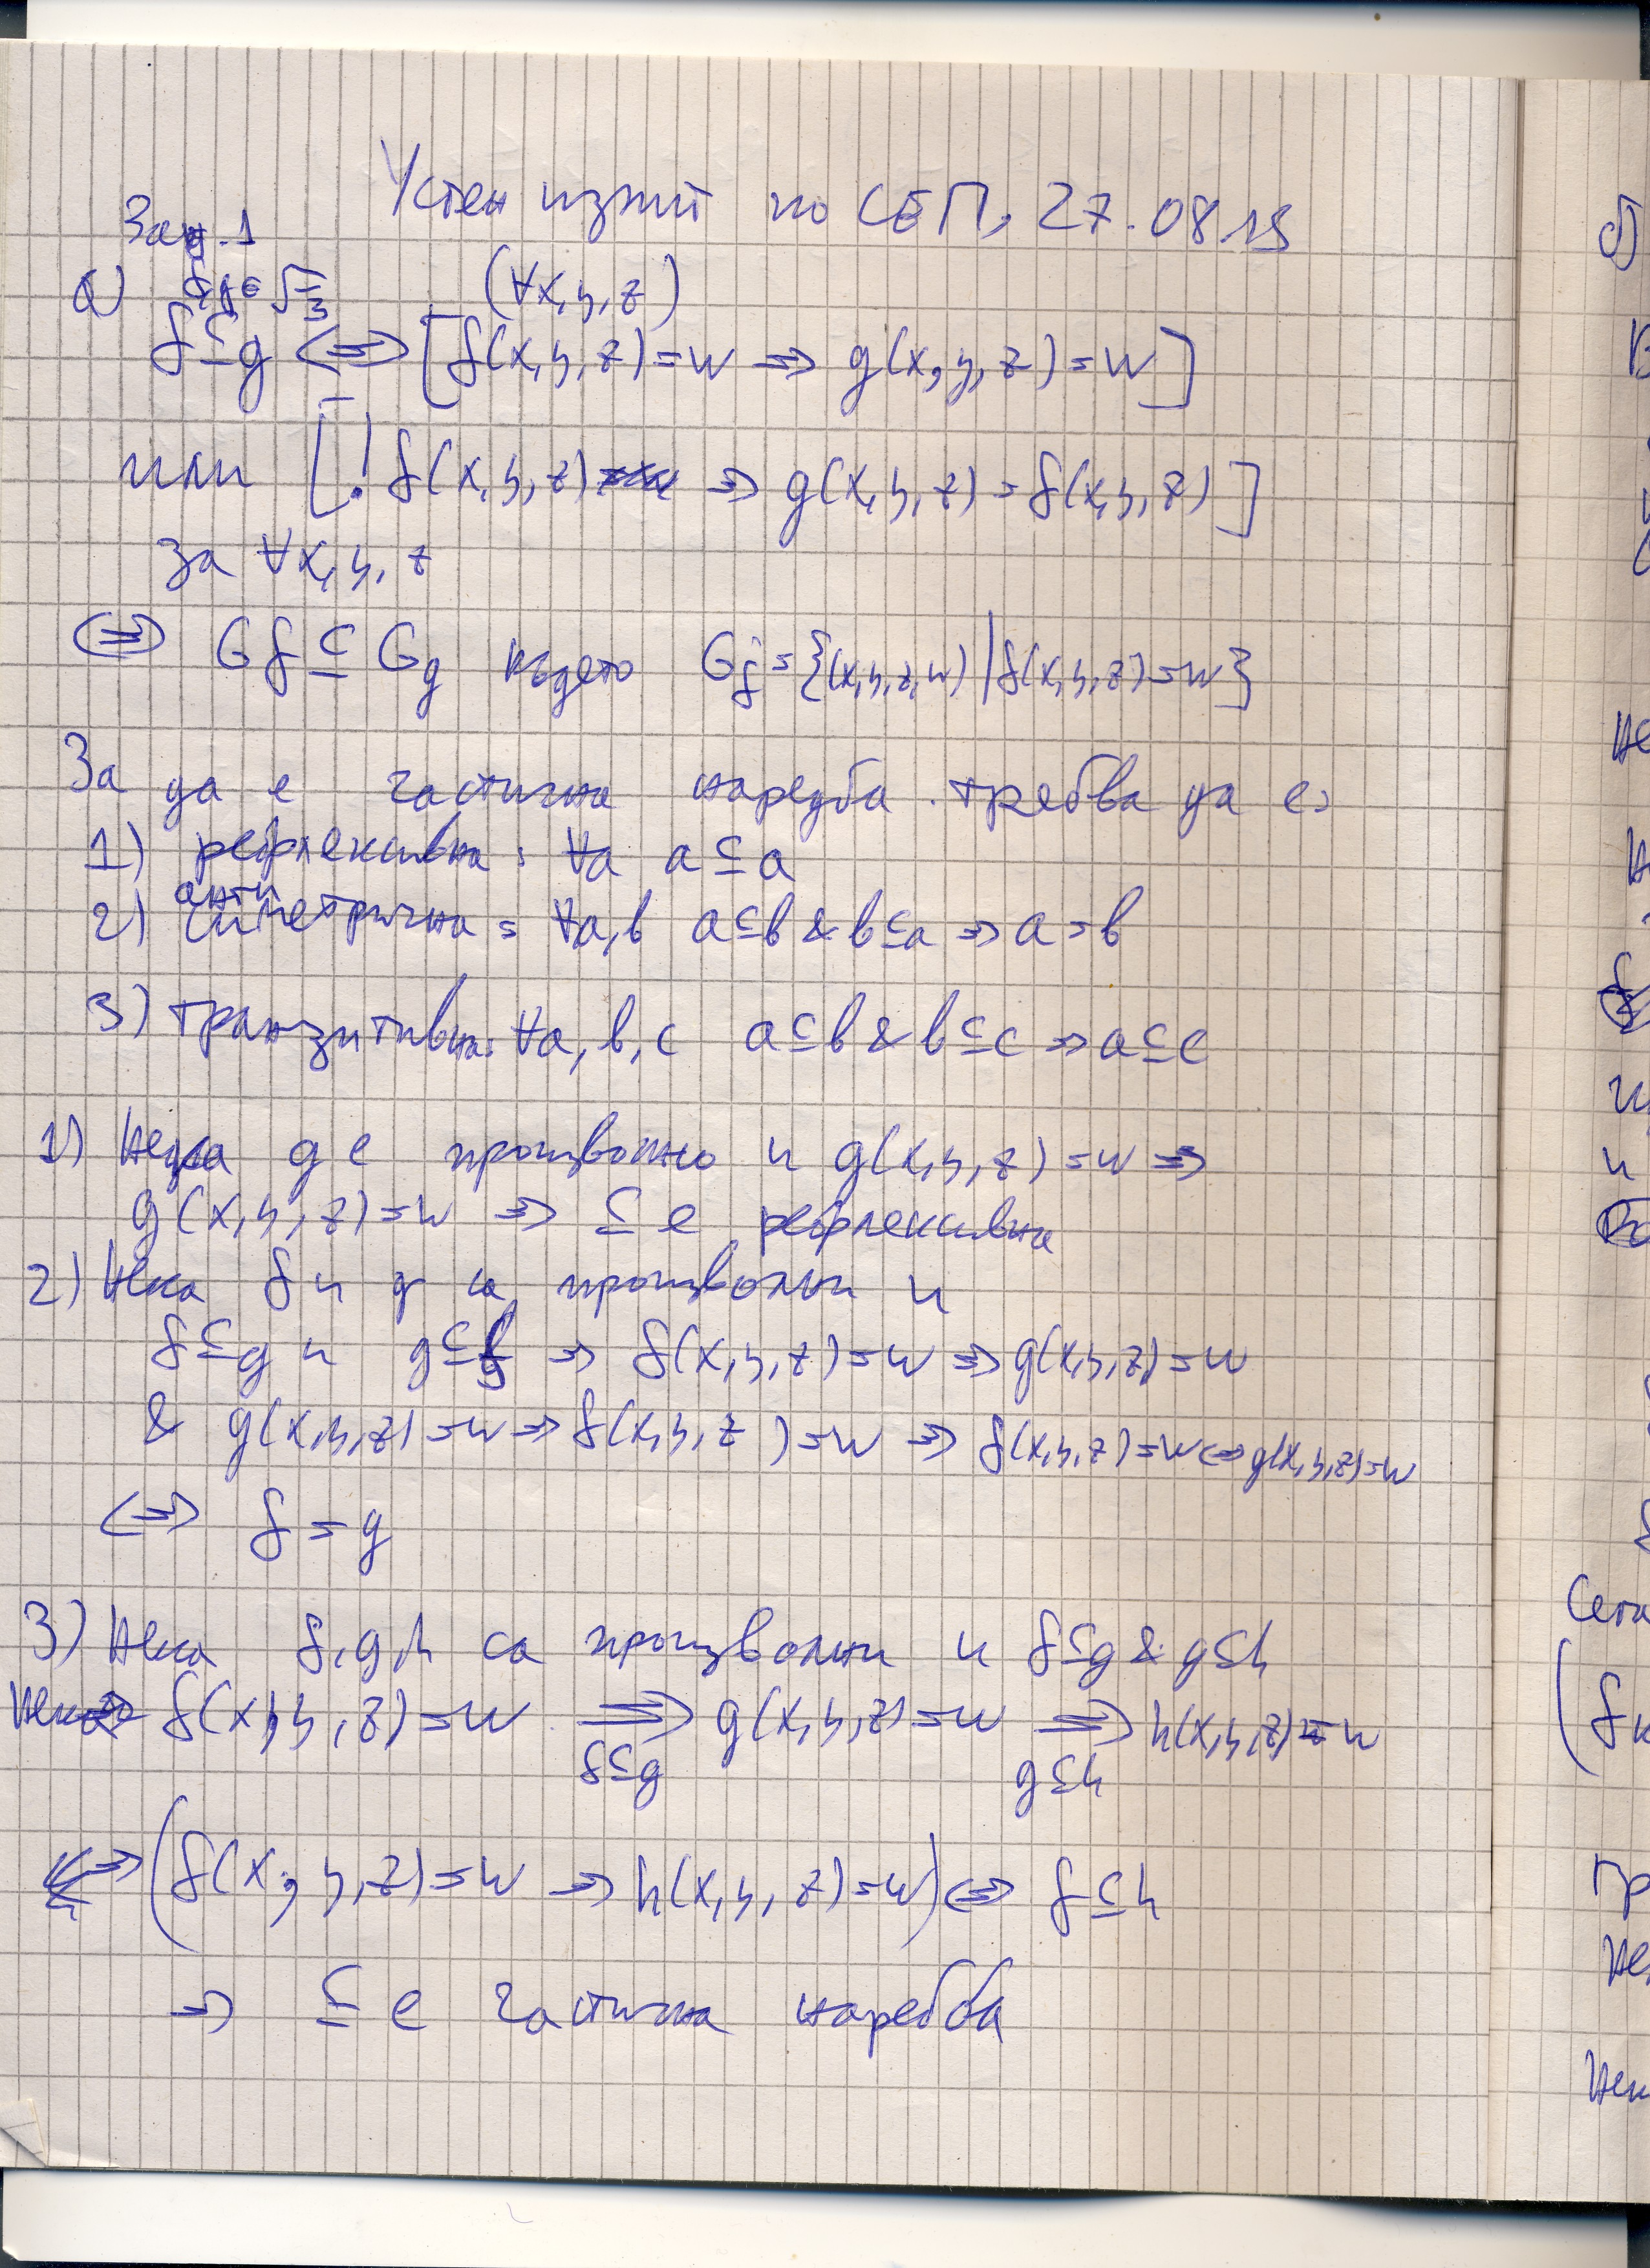 Устен изпит по СЕП, 27.08.19
Зад. 1
а) f,g ∈ F₃ (∀x,y,z)
f ⊆ g ⇔ [f(x,y,z)=w ⇒ g(x,y,z)=w]
или [! f(x,y,z) ⇒ g(x,y,z) = f(x,y,z)]
за ∀x,y,z
⇔ G_f ⊆ G_g където G_f = {(x,y,z,w) | f(x,y,z)=w}
За да е частична наредба трябва да е:
1) рефлексивна: ∀a a ⊆ a
2) антисиметрична: ∀a,b a⊆b & b⊆a ⇒ a=b
3) транзитивна: ∀a,b,c a⊆b & b⊆c ⇒ a⊆c
1) Нека g е произволно и g(x,y,z)=w ⇒
g(x,y,z)=w ⇒ ⊆ е рефлексивна
2) Нека f и g са произволни и
f⊆g и g⊆f ⇒ f(x,y,z)=w ⇒ g(x,y,z)=w
& g(x,y,z)=w ⇒ f(x,y,z)=w ⇒ f(x,y,z)=w ⇔ g(x,y,z)=w
⇔ f = g
3) Нека f,g,h са произволни и f⊆g & g⊆h
Нека f(x,y,z)=w ⇒ g(x,y,z)=w ⇒ h(x,y,z)=w
f⊆g g⊆h
⇔ (f(x,y,z)=w ⇒ h(x,y,z)=w) ⇔ f⊆h
⇒ ⊆ е частична наредба
б)